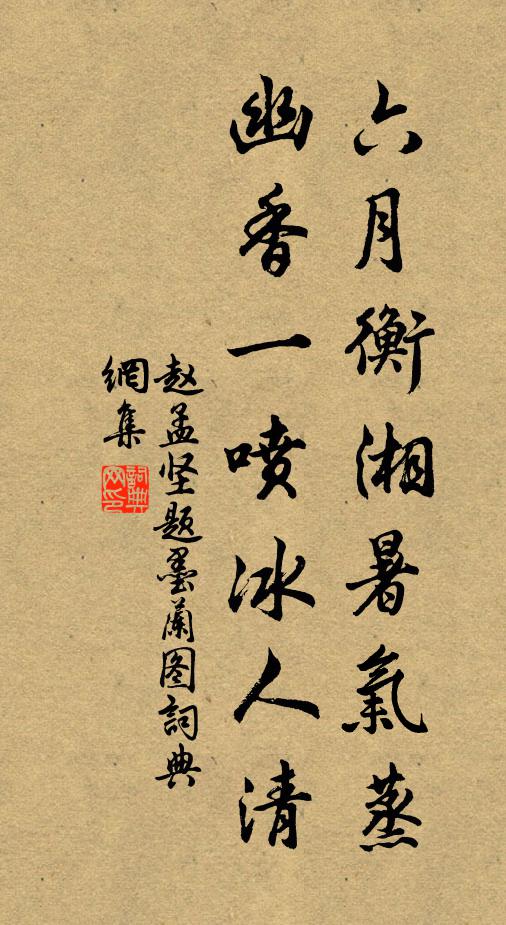 六月衡湘暑氣蒸
幽香一喷冰人清
赵孟坚题墨蘭图詞典
網集
詞典网印